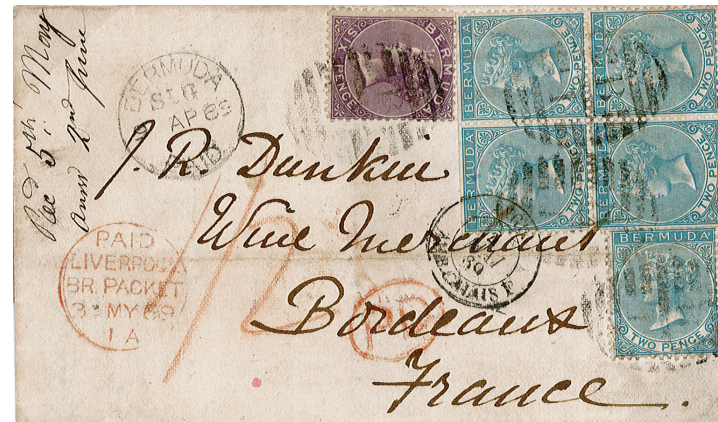 Recd 5th May
Answd 2nd June
BERMUDA
AP 69
PAID
SIX PENCE
BERMUDA
BERMUDA
TWO PENCE
BERMUDA
TWO PENCE
BERMUDA
TWO PENCE
BERMUDA
TWO PENCE
BERMUDA
TWO PENCE
J. R. Dunkin
Wine Merchant
Bordeaux
France.
1/2
PAID
LIVERPOOL
BR. PACKET
3 MY 69
1 A
CALAIS
PD